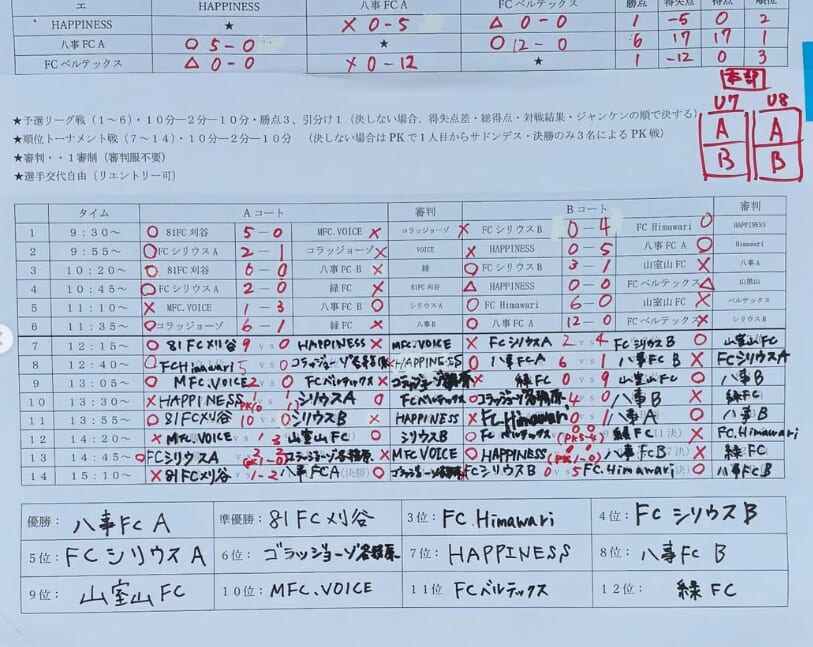 エ HAPPINESS 八事FC A FCベルテックス 勝点 得失点 得点 順位
HAPPINESS ★ × 0-5 △ 0-0 1 -5 0 2
八事FC A ○ 5-0 ★ ○ 12-0 6 17 17 1
FCベルテックス △ 0-0 × 0-12 ★ 1 -12 0 3
本部
U7 U8
A A
B B
★予選リーグ戦(1~6)・10分―2分―10分・勝点3、引分け1(決しない場合、得失点差・総得点・対戦結果・ジャンケンの順で決する)
★順位トーナメント戦(7~14)・10分―2分―10分 (決しない場合はPKで1人目からサドンデス・決勝のみ3名によるPK戦)
★審判・・1審制(審判服不要)
★選手交代自由(リエントリー可)
タイム Aコート 審判 Bコート 審判
1 9:30~ ○ 81FC刈谷 5-0 MFC.VOICE × コラッジョーゾ × FCシリウスB 0-4 FC Himawari ○ HAPPINESS
2 9:55~ ○ FCシリウスA 2-1 コラッジョーゾ × VOICE × HAPPINESS 0-5 八事FC A ○ Himawari
3 10:20~ ○ 81FC刈谷 6-0 八事FC B × 緑 ○ FCシリウスB 3-1 山室山FC × 八事A
4 10:45~ ○ FCシリウスA 2-0 緑FC × 81FC刈谷 △ HAPPINESS 0-0 FCベルテックス △ 山室山
5 11:10~ × MFC.VOICE 1-3 八事FC B ○ シリウスA ○ FC Himawari 6-0 山室山FC × ベルテックス
6 11:35~ ○ コラッジョーゾ 6-1 緑FC × 八事B ○ 八事FC A 12-0 FCベルテックス × シリウスB
7 12:15~ ○ 81FC刈谷 9 vs 0 HAPPINESS × MFC.VOICE × FCシリウスA 2 vs 4 FCシリウスB ○ 山室山FC
8 12:40~ ○ FC Himawari 5 0 コラッジョーゾ各務原 × HAPPINESS ○ 八事FCA 6 vs 1 八事FC B × FCシリウスA
9 13:05~ ○ MFC.VOICE 2 0 FCベルテックス × コラッジョーゾ各務原 × 緑FC 0 vs 9 山室山FC ○ 八事B
10 13:30~ × HAPPINESS 1 PK/0 1 シリウスA ○ FCベルテックス ○ コラッジョーゾ各務原 4 0 八事B × 緑FC
11 13:55~ ○ 81FC刈谷 10 vs 0 シリウスB × HAPPINESS × FC.Himawari 0 1 八事A ○ 八事B
12 14:20~ × MFC.VOICE 1 3 山室山FC ○ シリウスB ○ FCベルテックス 0 0 (PK5-4) 緑FC 決) × FC.Himawari
13 14:45~ ○ FCシリウスA 2 2 (PK1-0) コラッジョーゾ各務原 × MFC.VOICE ○ HAPPINESS 0 0 (PK1-0) 八事FCB 決) × 緑FC
14 15:10~ × 81FC刈谷 1-2 八事FCA (決勝) ○ コラッジョーゾ各務原 × FCシリウスB 0 vs 5 FC.Himawari ○ 八事FC B
優勝: 八事FC A 準優勝: 81FC刈谷 3位: FC.Himawari 4位: FCシリウスB
5位: FCシリウスA 6位: コラッジョーゾ各務原 7位: HAPPINESS 8位: 八事FC B
9位: 山室山FC 10位: MFC.VOICE 11位 FCベルテックス 12位: 緑FC